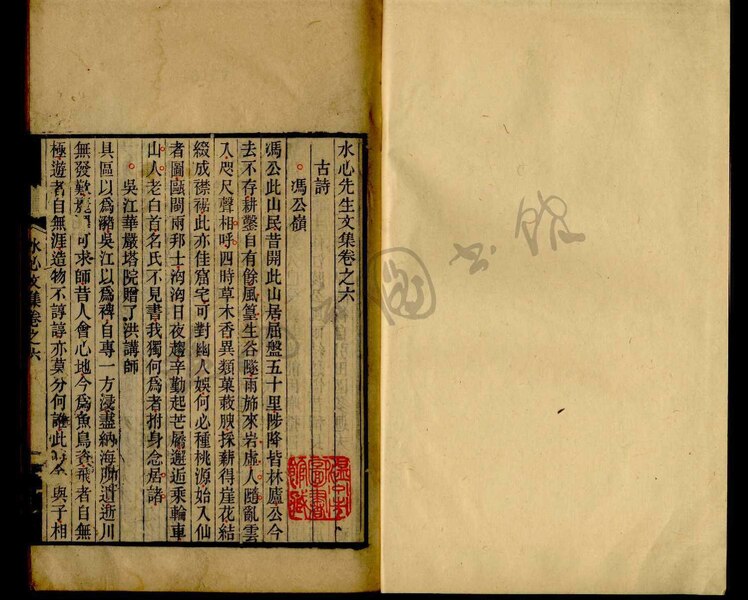 水心先生文集卷之六
古詩
馮公嶺
馮公此山民昔開此山居屈盤五十里陟降皆林廬公今
去不存耕鑿自有餘風篁生谷隧雨旆來岩虛人隨亂雲
入咫尺聲相呼四時草木香異類菓蓛腴採薪得崖花結
綴成襟裾此亦佳窟宅可對幽人娛何必種桃源始入仙
者圖甌閩兩邦士洶洶日夜趨辛勤起芒屩邂逅乘輪車
山人老白首名氏不見書我獨何爲者拊身念居諸
吳江華嚴塔院贈了洪講師
具區以爲瀦吳江以爲稗自專一方浸盡納海所逍逝川
無發歎 可求師昔人會心地今爲魚鳥資飛者自無
極遊者自無涯造物不諄諄亦莫分何誰此 與子相
水心文集卷之六